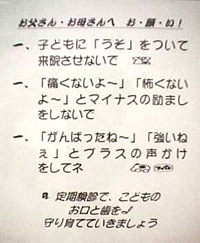 お父さん・お母さんへ お・願・い!
一、子どもに「うそ」をついて
来院させないで
一、「痛くないよ〜」「怖くない
よ〜」とマイナスの励まし
をしないで
一、「がんばったね〜」「強いね
ぇ」とプラスの声かけ
をしてネ
定期健診で、こどもの
お口と歯を
守り育てていきましょう